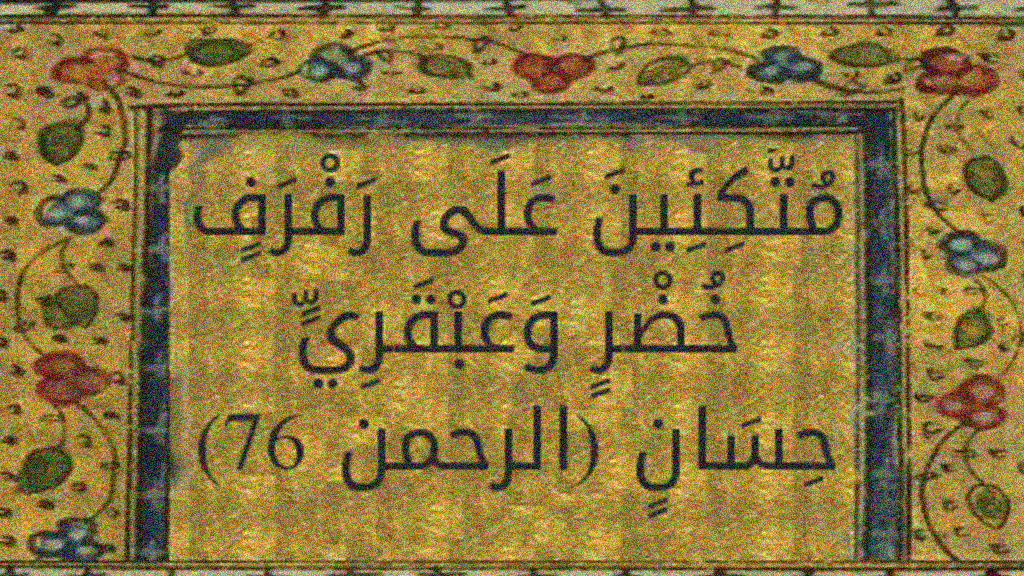 مُتَّكِئِينَ عَلَى رَفْرَفٍ
خُضْرٍ وَعَبْقَرِيٍّ
حِسَانٍ (الرحمن 76)